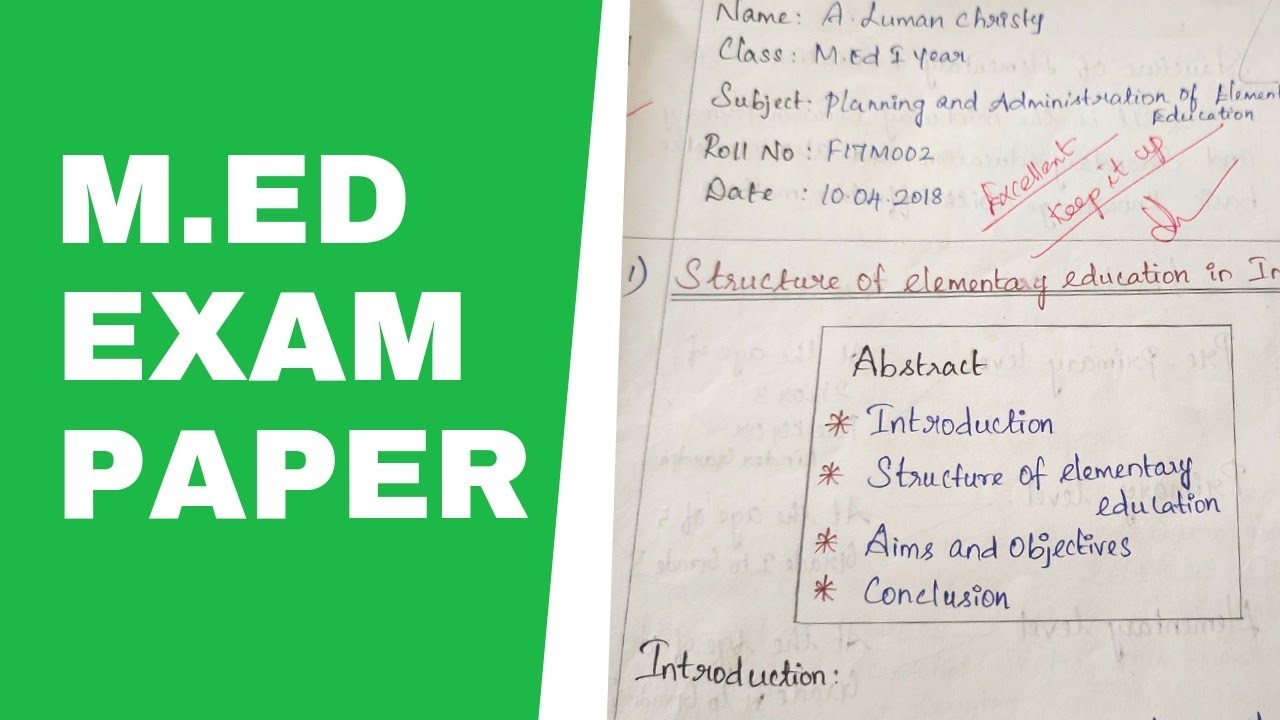 M.ED
EXAM
PAPER
Name: A. Luman Christy
Class: M.Ed I year
Subject: Planning and Administration of Element
Education
Roll No: F17M002
Date : 10.04.2018
Excellent
Keep it up
1) Structure of elementary education in In
Abstract
* Introduction
* Structure of elementary
education
* Aims and Objectives
* Conclusion
Introduction: